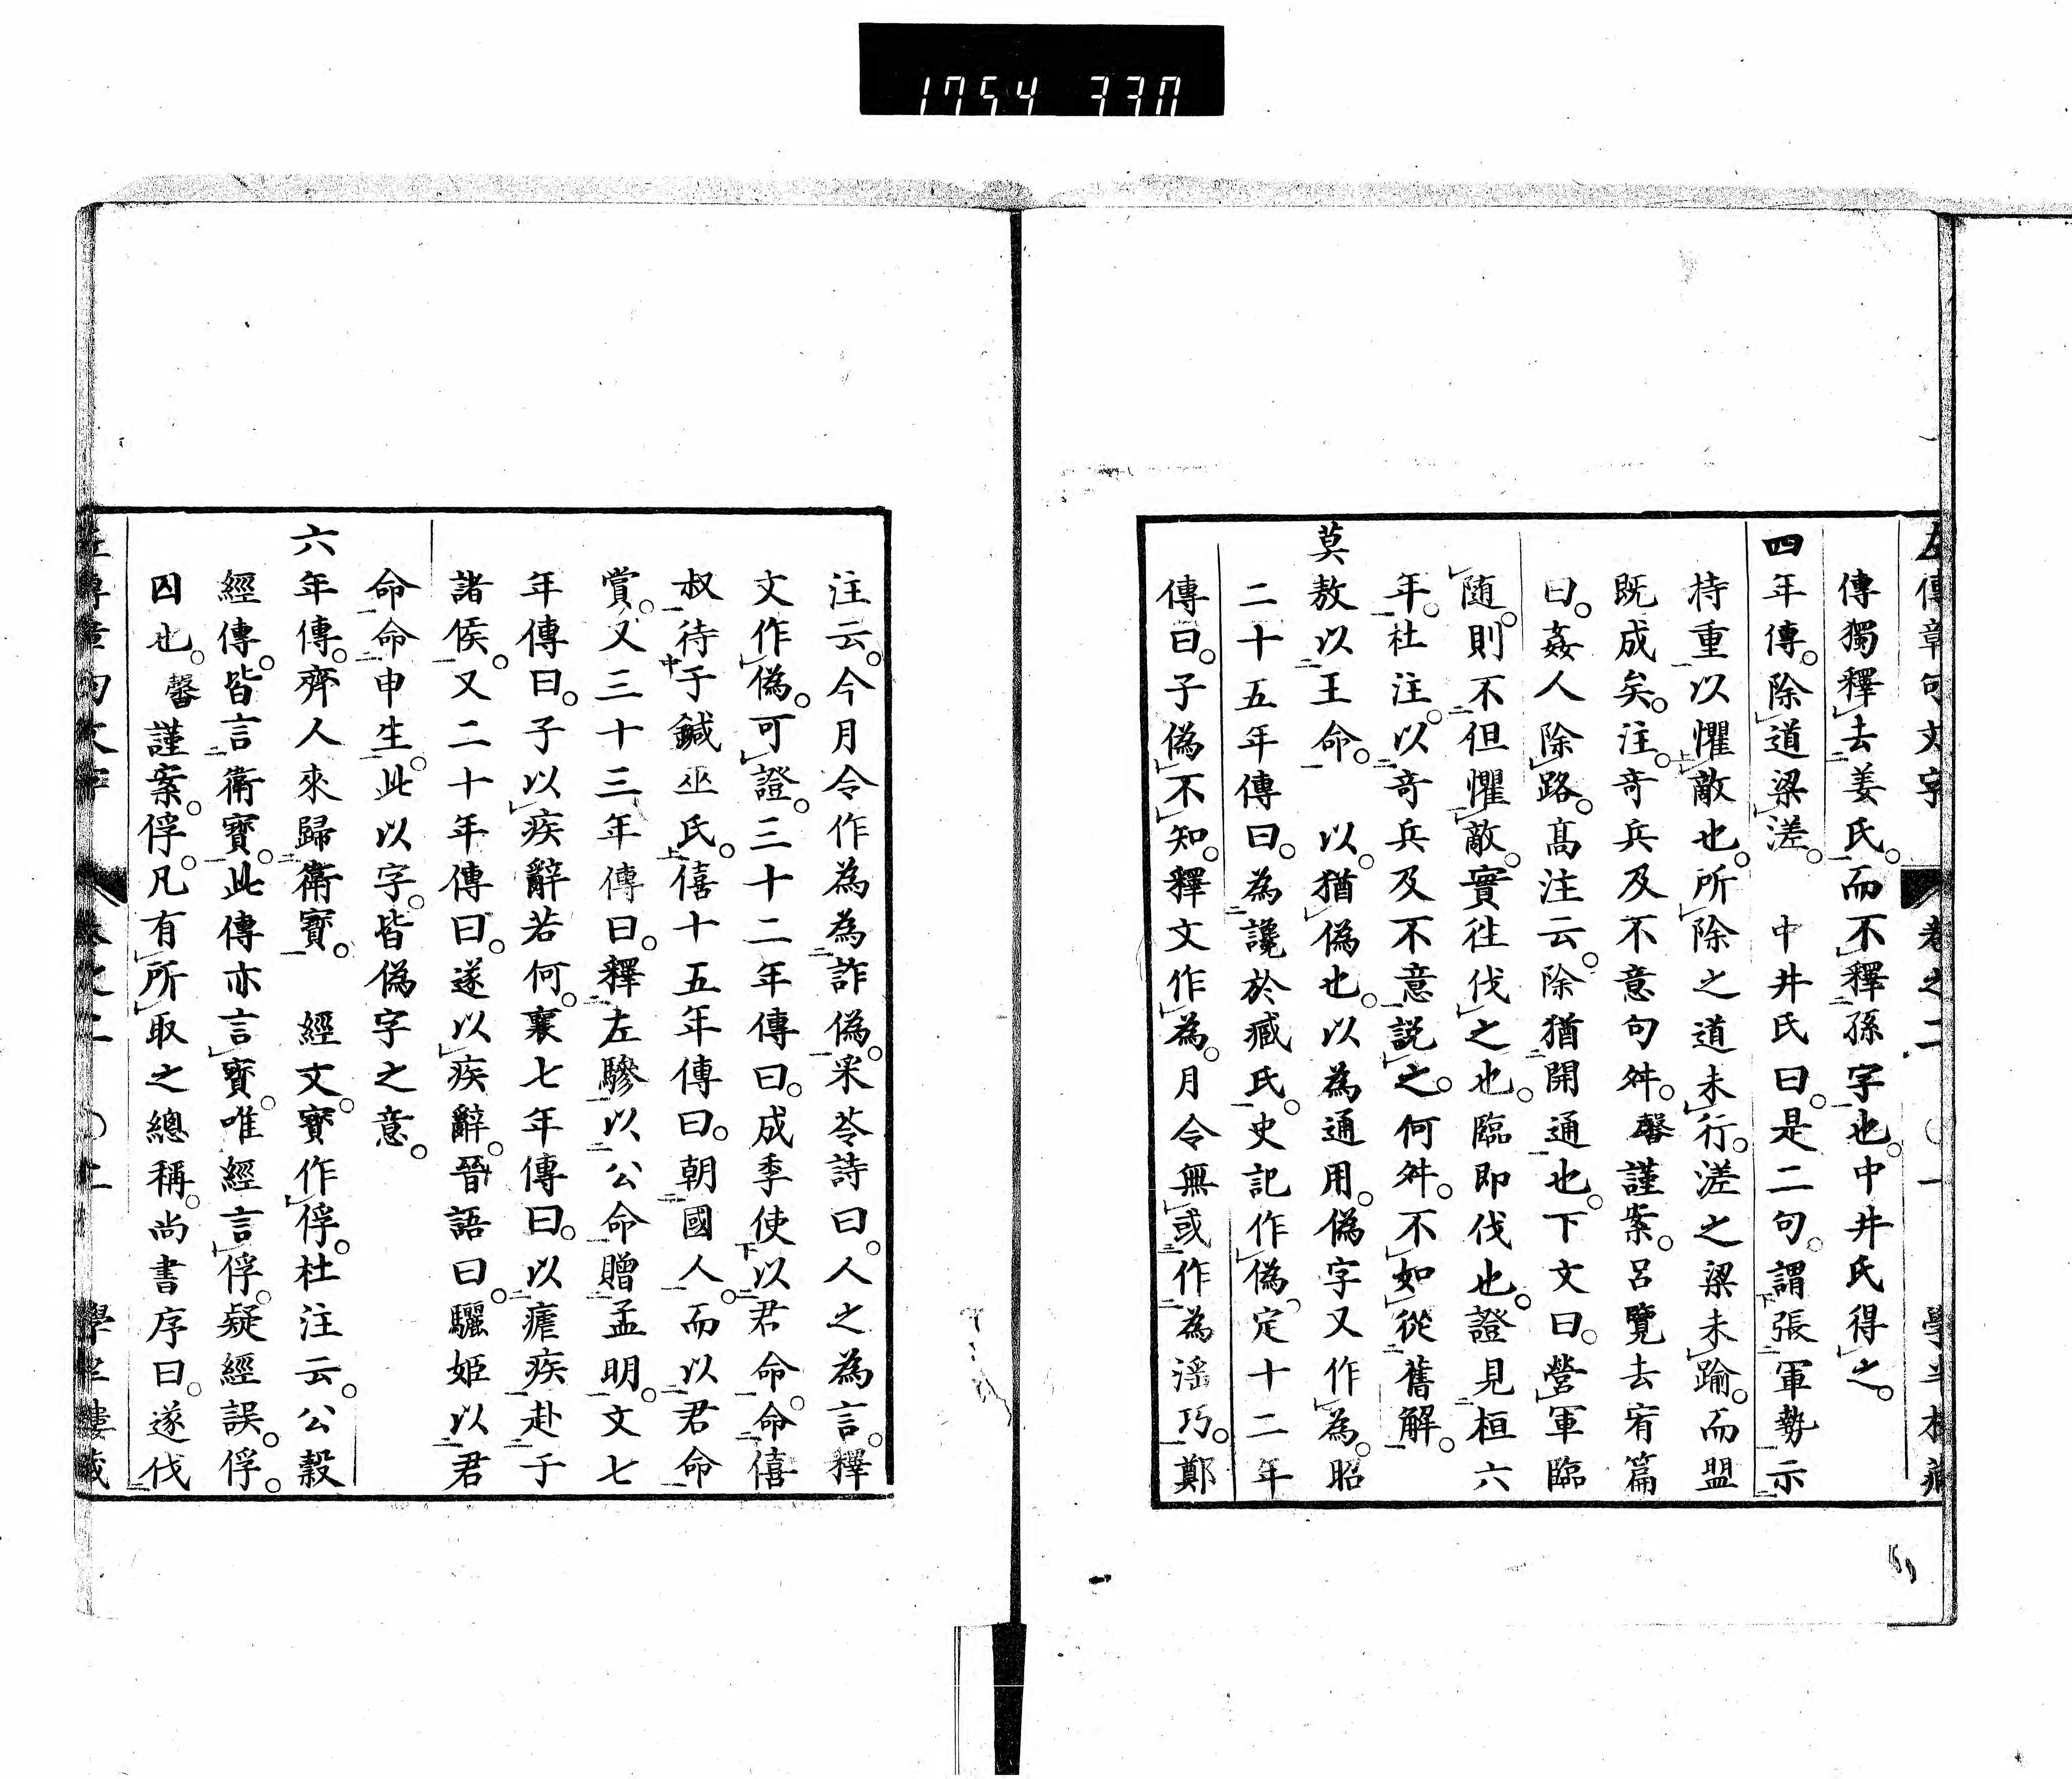 1754 330
左傳章句文字 卷之二 ○一 學半樓藏
傳獨釋去姜氏。而不釋孫字也。中井氏得之。
四年傳。除道梁溠。 中井氏曰。是二句。謂張軍勢示
持重以懼敵也。所除之道未行。溠之梁未踰。而盟
既成矣。注。奇兵及不意句舛。馨謹案。呂覽去宥篇
曰。姦人除路。高注云。除猶開通也。下文曰。營軍臨
隨。則不但懼敵。實往伐之也。臨即伐也。證見桓六
年。杜注。以奇兵及不意説之。何舛。不如從舊解。
莫敖以王命。 以。猶偽也。以為通用。偽字又作為。昭
二十五年傳曰。為讒於臧氏。史記作偽。定十二年
傳曰。子偽不知。釋文作為。月令無或作為淫巧。鄭
注云。今月令作為為詐偽。采苓詩曰。人之為言。釋
文作偽。可證。三十二年傳曰。成季使以君命。命僖
叔待于鍼巫氏。僖十五年傳曰。朝國人。而以君命
賞。又三十三年傳曰。釋左驂以公命贈孟明。文七
年傳曰。子以疾辭若何。襄七年傳曰。以瘧疾赴于
諸侯。又二十年傳曰。遂以疾辭。晉語曰。驪姬以君
命命申生。此以字。皆偽字之意。
六年傳。齊人來歸衛寶。 經文。寶作俘。杜注云。公穀
經傳。皆言衛寶。此傳亦言寶。唯經言俘。疑經誤。俘。
囚也。馨謹案。俘。凡有所取之總稱。尚書序曰。遂伐
左傳章句文字 卷之二 ○二 學半樓藏